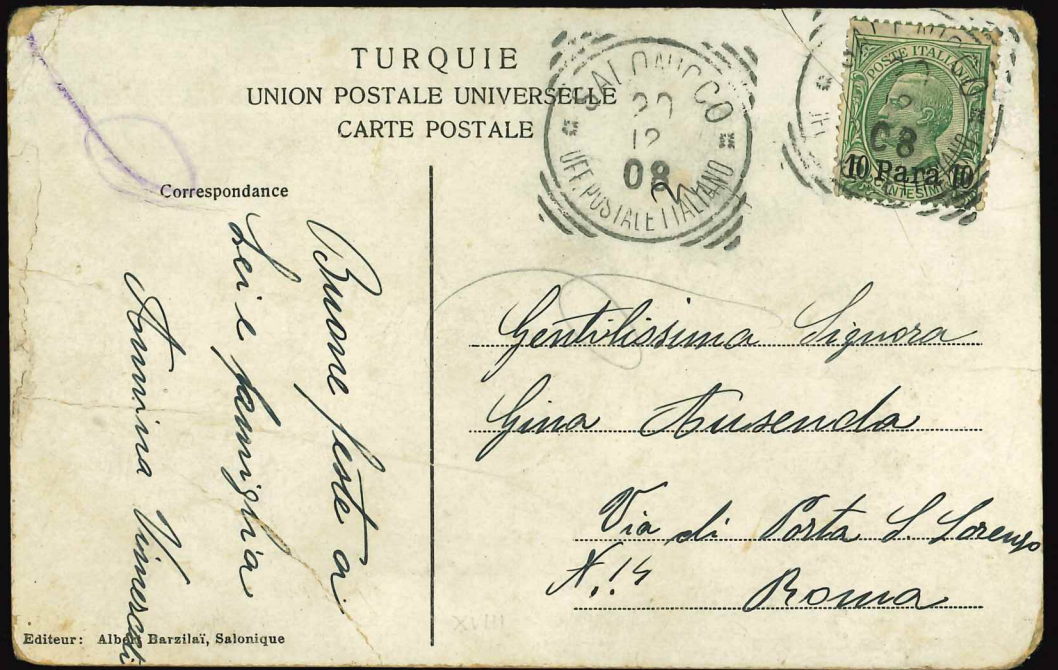 TURQUIE
UNION POSTALE UNIVERSELLE
CARTE POSTALE
SALONICCO
20
12
08
UFF. POSTALE ITALIANO
POSTE ITALIANE
08
10 Para 10
CENTESIMI
Correspondance
Buone feste a
Lei e famiglia
Annina Vimercati
Gentilissima Signora
Gina Ausenda
Via di Porta S. Lorenzo
N.
Roma
Editeur: Albert Barzilaï, Salonique